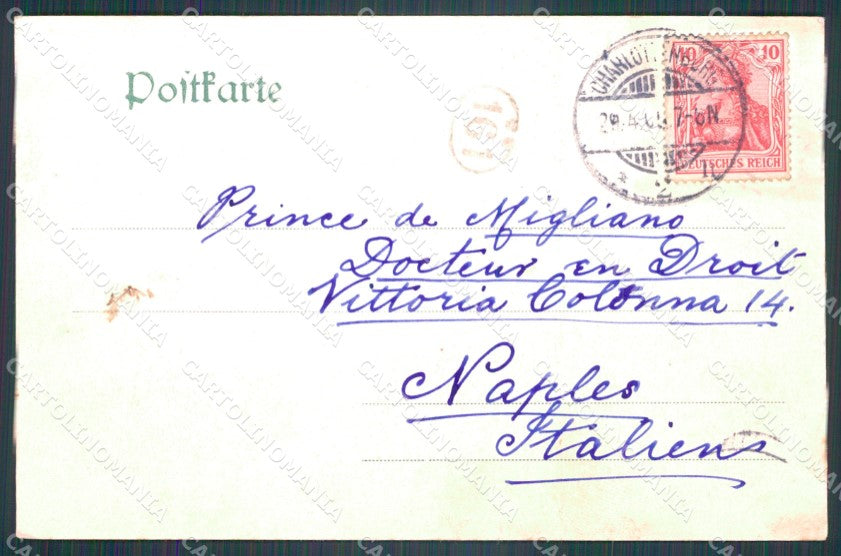 Postkarte
CHARLOTTENBURG
7-8N.
2
10 10
DEUTSCHES REICH
Prince de Migliano
Docteur en Droit
Vittoria Colonna 14.
Naples
Italien
CARTOLINOMANIA